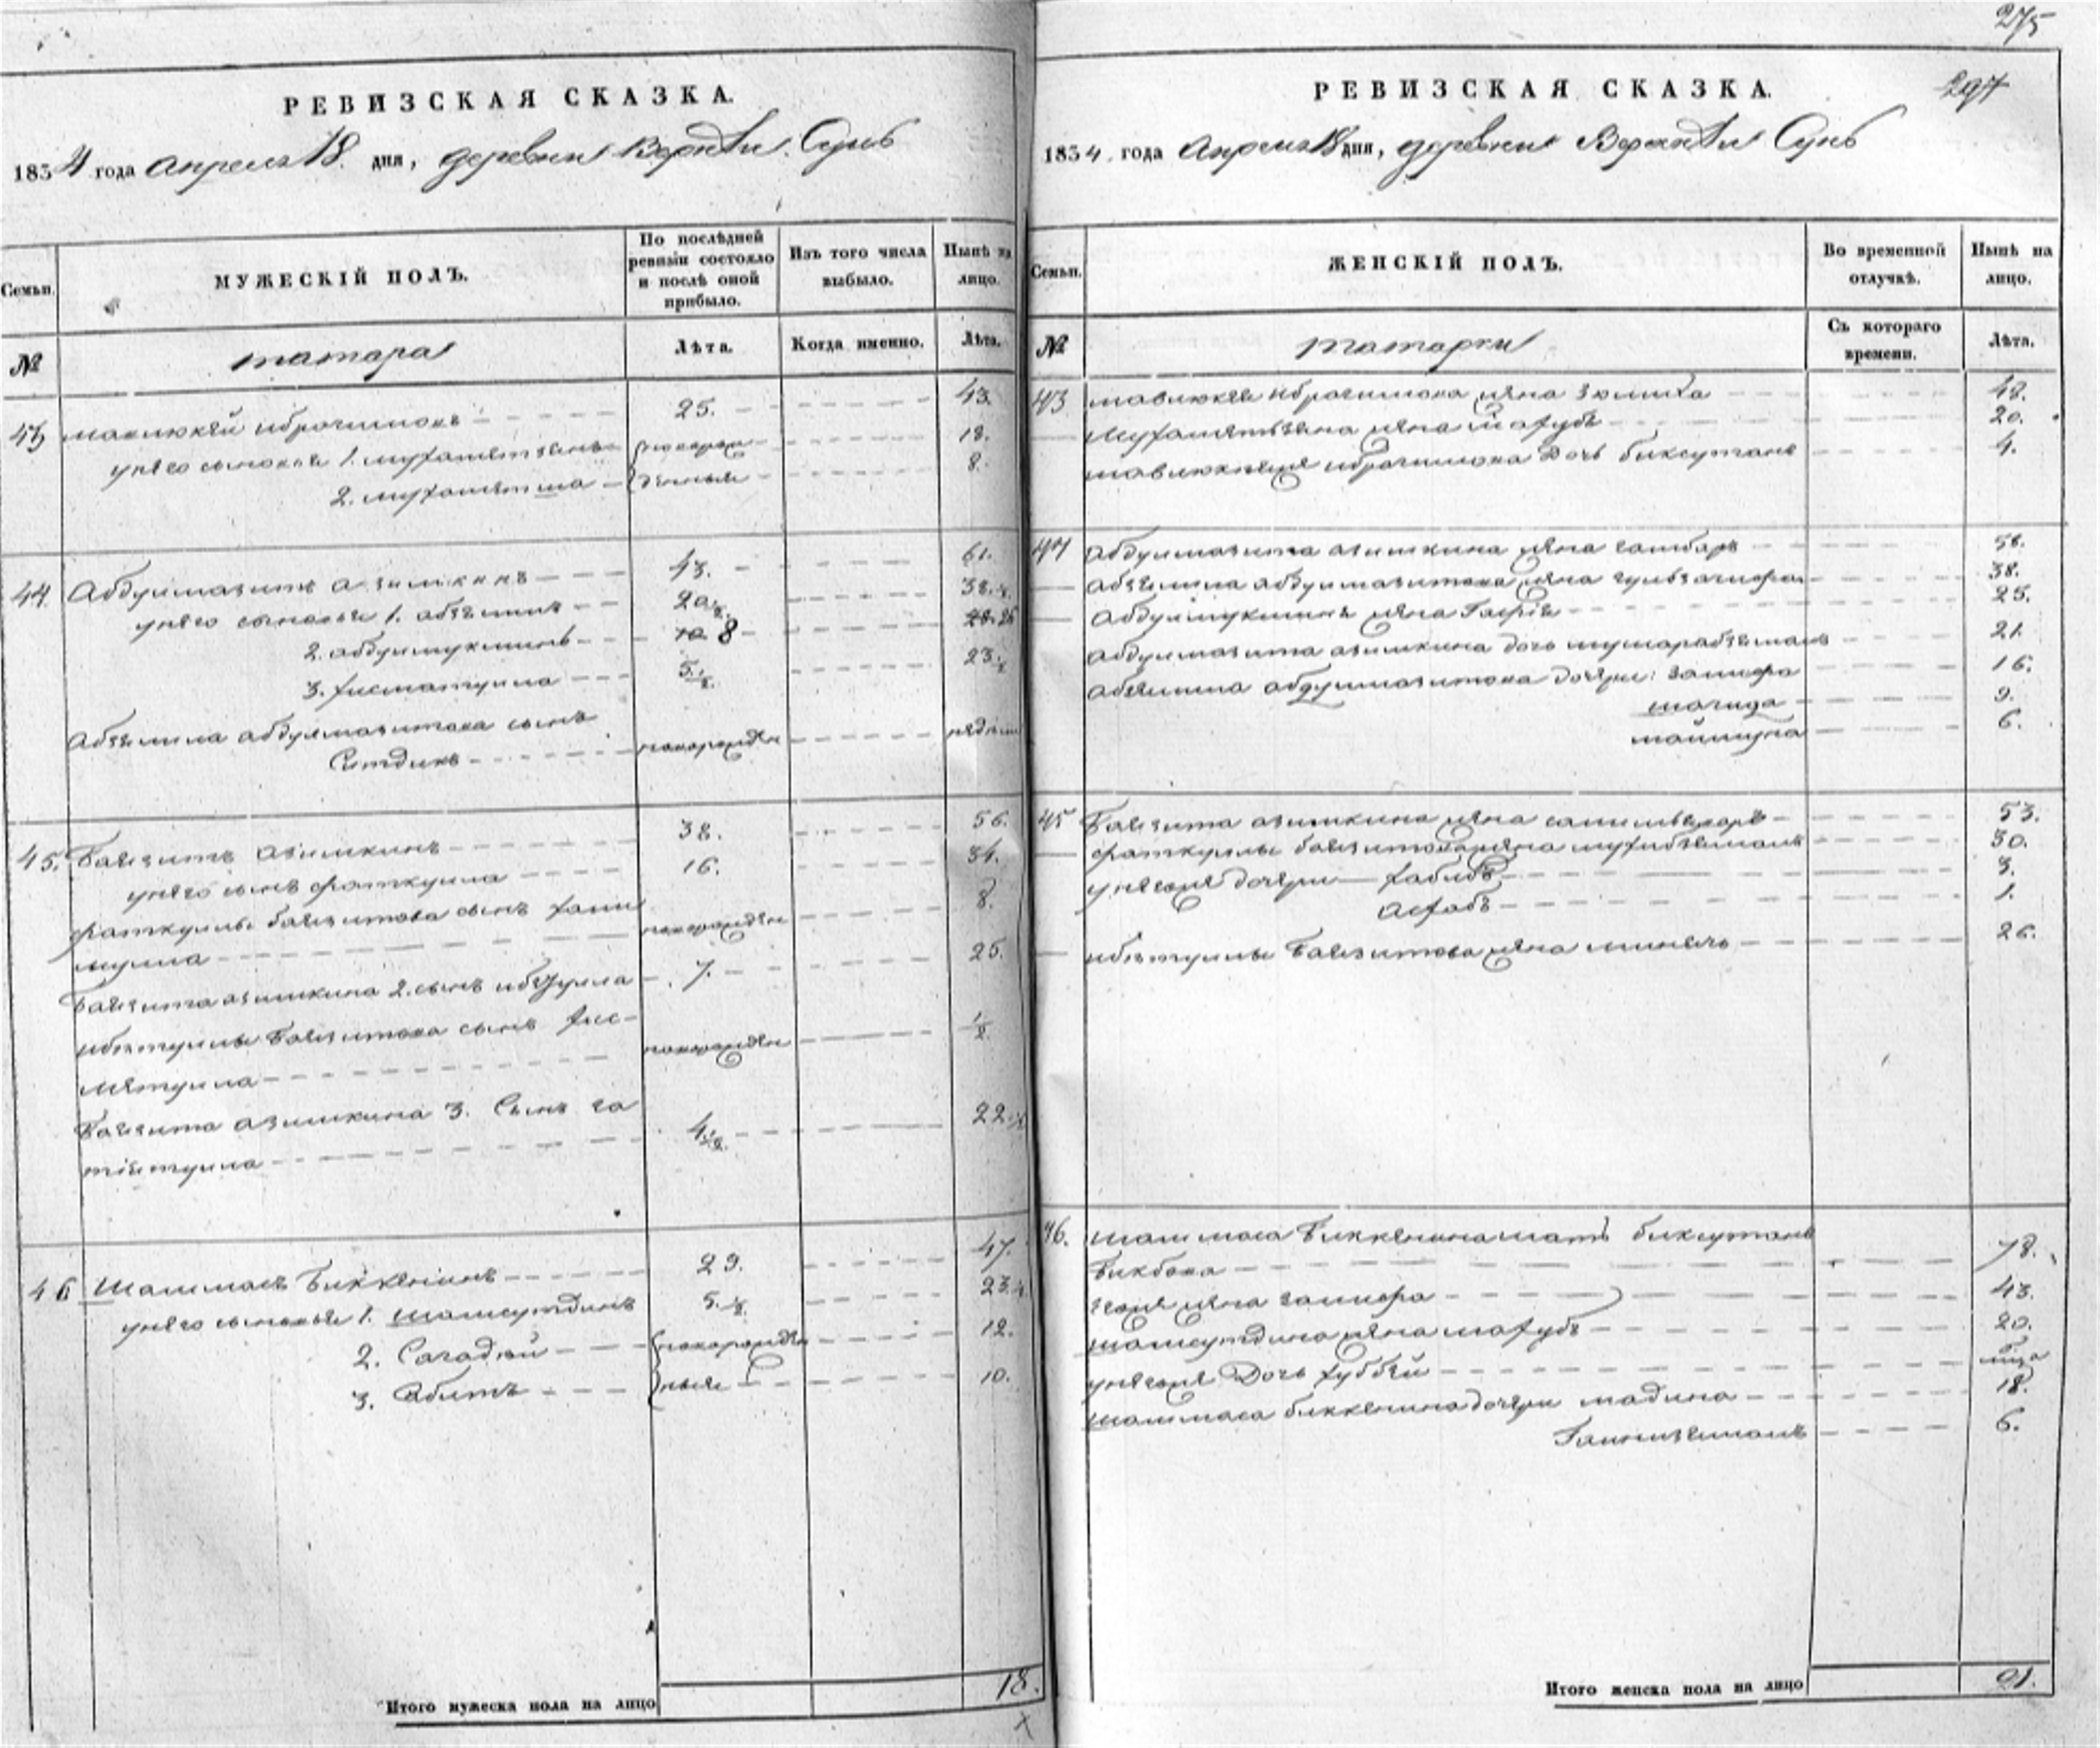 275
РЕВИЗСКАЯ СКАЗКА.
1834 года апреля 18. дня, деревни Верхней Сунь
Семьи.
МУЖЕСКІЙ ПОЛЪ.
По послѣдней ревизіи состояло и послѣ оной прибыло.
Изъ того числа выбыло.
Нынѣ на лицо.
№
татара
Лѣта.
Когда именно.
Лѣта.
43 мавлюкей иброгимовъ 25. 43.
у него сыновья 1. мухаметзянъ новорож 18.
2. мухаметша денные 8.
44. Абдулмазитъ азимкинъ 43. 61.
у него сыновья 1. абзелилъ 20½. 38.½.
2. абдулмукминъ 10 8 28 26
3. хисматулла 5.½. 23.½
Абзелила абдулмазитова сынъ
Ситдикъ новорожден недели
45. Баязитъ азимкинъ 38. 56.
у него сынъ фаткулла 16. 34.
фаткуллы баязитова сынъ хами
мулла новорожден 8.
Баязита азимкина 2. сынъ ибетулла 7. 25.
ибетуллы Баязитова сынъ хис-
метулла новорожден ½.
Баязита азимкина 3. Сынъ га
тиетулла 4½. 22.½
46 Шалмасъ Биккенинъ 29. 47.
у него сыновья 1. шамсутдинъ 5.½. 23.½
2. Сагадей новорожден 12.
3. Абитъ ные 10.
Итого мужеска пола на лицо 18.
РЕВИЗСКАЯ СКАЗКА. 297
1834. года апреля 18 дня, деревни Верхней Сунь
Семьи.
ЖЕНСКІЙ ПОЛЪ.
Во временной отлучкѣ.
Нынѣ на лицо.
№
татарки
Съ котораго времени.
Лѣта.
43 мавлюкея иброгимова жена зюлиха 48.
Мухаметзяна жена магубъ 20.
мавлюкеея иброгимова Дочь биксутанъ 4.
44 абдулмазита азимкина жена гамбаръ 58.
абзелила абдулмазитова жена гульзагифа 38.
Абдулмукминъ жена Гафіе 25.
абдулмазита азимкина дочь мушарабземалъ 21.
абзелила абдулмазитова дочери: залифа 16.
шагида 9.
маймуна 6.
45 Баязита азимкина жена 53.
фаткуллы баязитова жена мухибземалъ 30.
у нея дочери хабибъ 3.
Асхабъ 1.
ибетуллы Баязитова жена 26.
46. шалмаса Биккенина мать биксутанъ
Бикбова 78.
его жена залифа 43.
шамсутдина жена махубъ 20.
у нея Дочь хуббей
шалмаса биккенина дочери мадина 18.
6.
Итого женска пола на лицо 21.